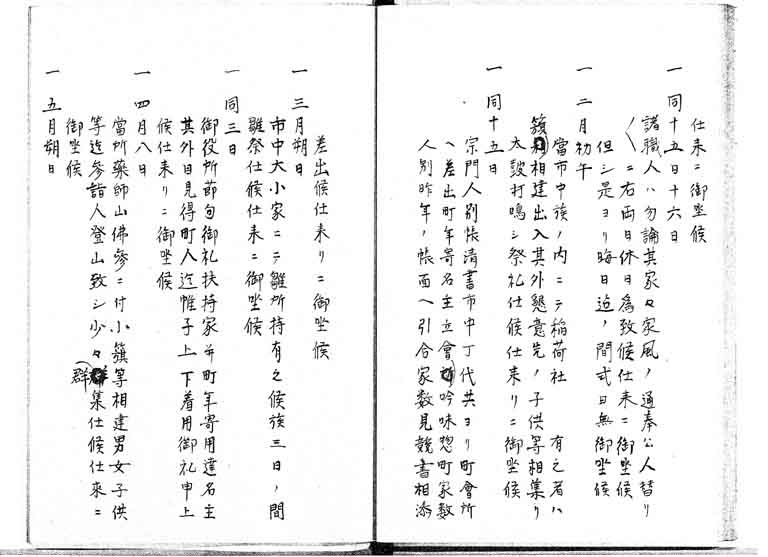 仕来ニ御坐候
一 同十五日十六日
諸職人ハ勿論其家々家風ノ通奉公人替り
〱ニ右両日休日為致候仕来ニ御坐候
但シ是ヨリ晦日迄ノ間式日無御坐候
一 二月初午
當市中族ノ内ニテ稲荷社 有之者ハ
籏相建出入其外懇意先ノ子供等相集り
太皷打鳴シ祭礼仕候仕来リニ御坐候
一 同十五日
宗門人別帳清書市中丁代共ヨリ町會所
ヘ差出町年寄名主立會吟味惣町家数
人別昨年ノ帳面ヘ引合家数見競書相添
差出候仕来リニ御坐候
一 三月朔日
市中大小家ニテ雛所持有之候族三日ノ間
雛祭仕候仕来ニ御坐候
一 同三日
御役所節句御礼扶持家并町年寄用達名主
其外目見得町人迄帷子上下着用御礼申上
候仕来リニ御坐候
一 四月八日
當所藥師山佛參ニ付小籏等相建男女子供
等迄參詣人登山致シ少々群集仕候仕來ニ
御坐候
一 五月朔日